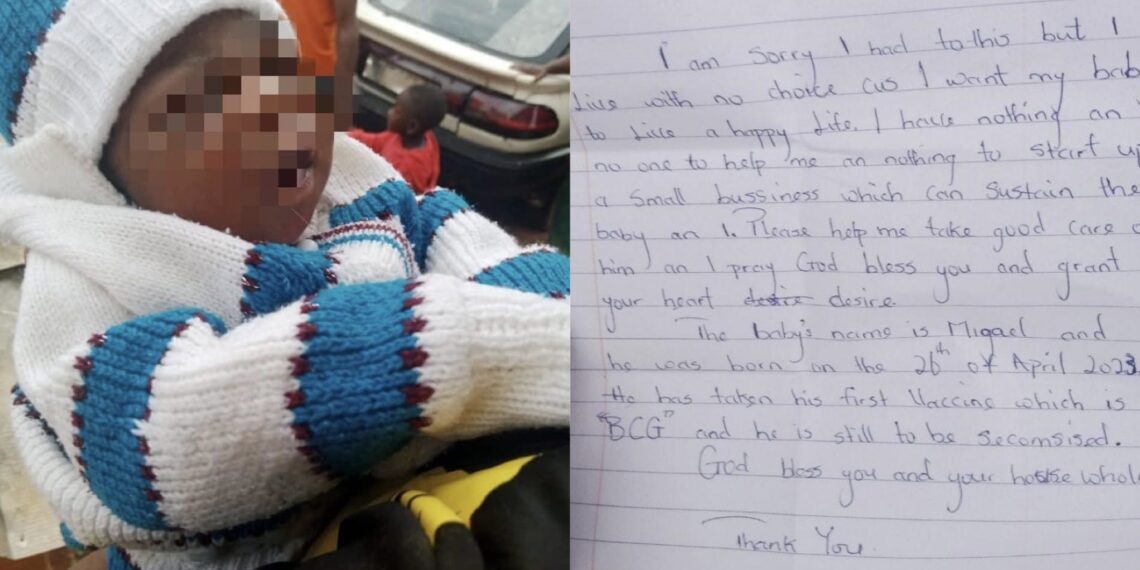 I am sorry I had to this but I
Live with no choice cus I want my bab
to Live a happy Life. I have nothing an
no one to help me an nothing to start up
a small bussiness which can sustain the
baby an I. Please help me take good care o
him an I pray God bless you and grant
your heart desire desire.
The baby's name is Migael and
he was born on the 26th of April 2023.
He has taken his first Vaccine which is
"BCG" and he is still to be secomsised.
God bless you and your house whol
Thank You.